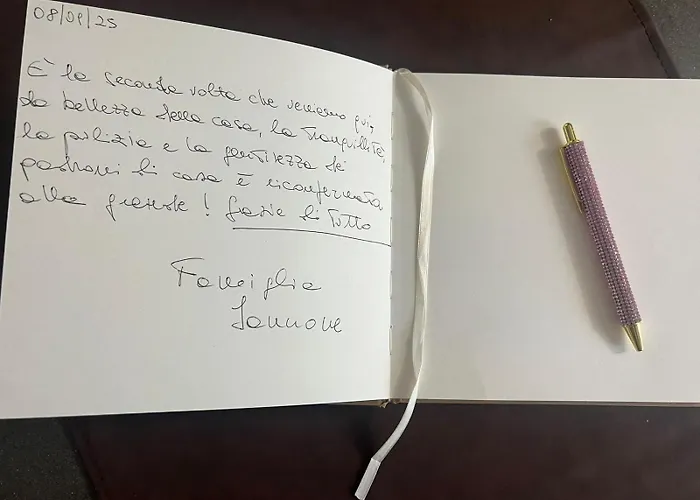 08/09/25
È la seconda volta che veniamo qui,
la bellezza della casa, la tranquillità,
la pulizia e la gentilezza dei
padroni di casa è riconfermata
alla grande! Grazie di tutto
Famiglia
Iannone